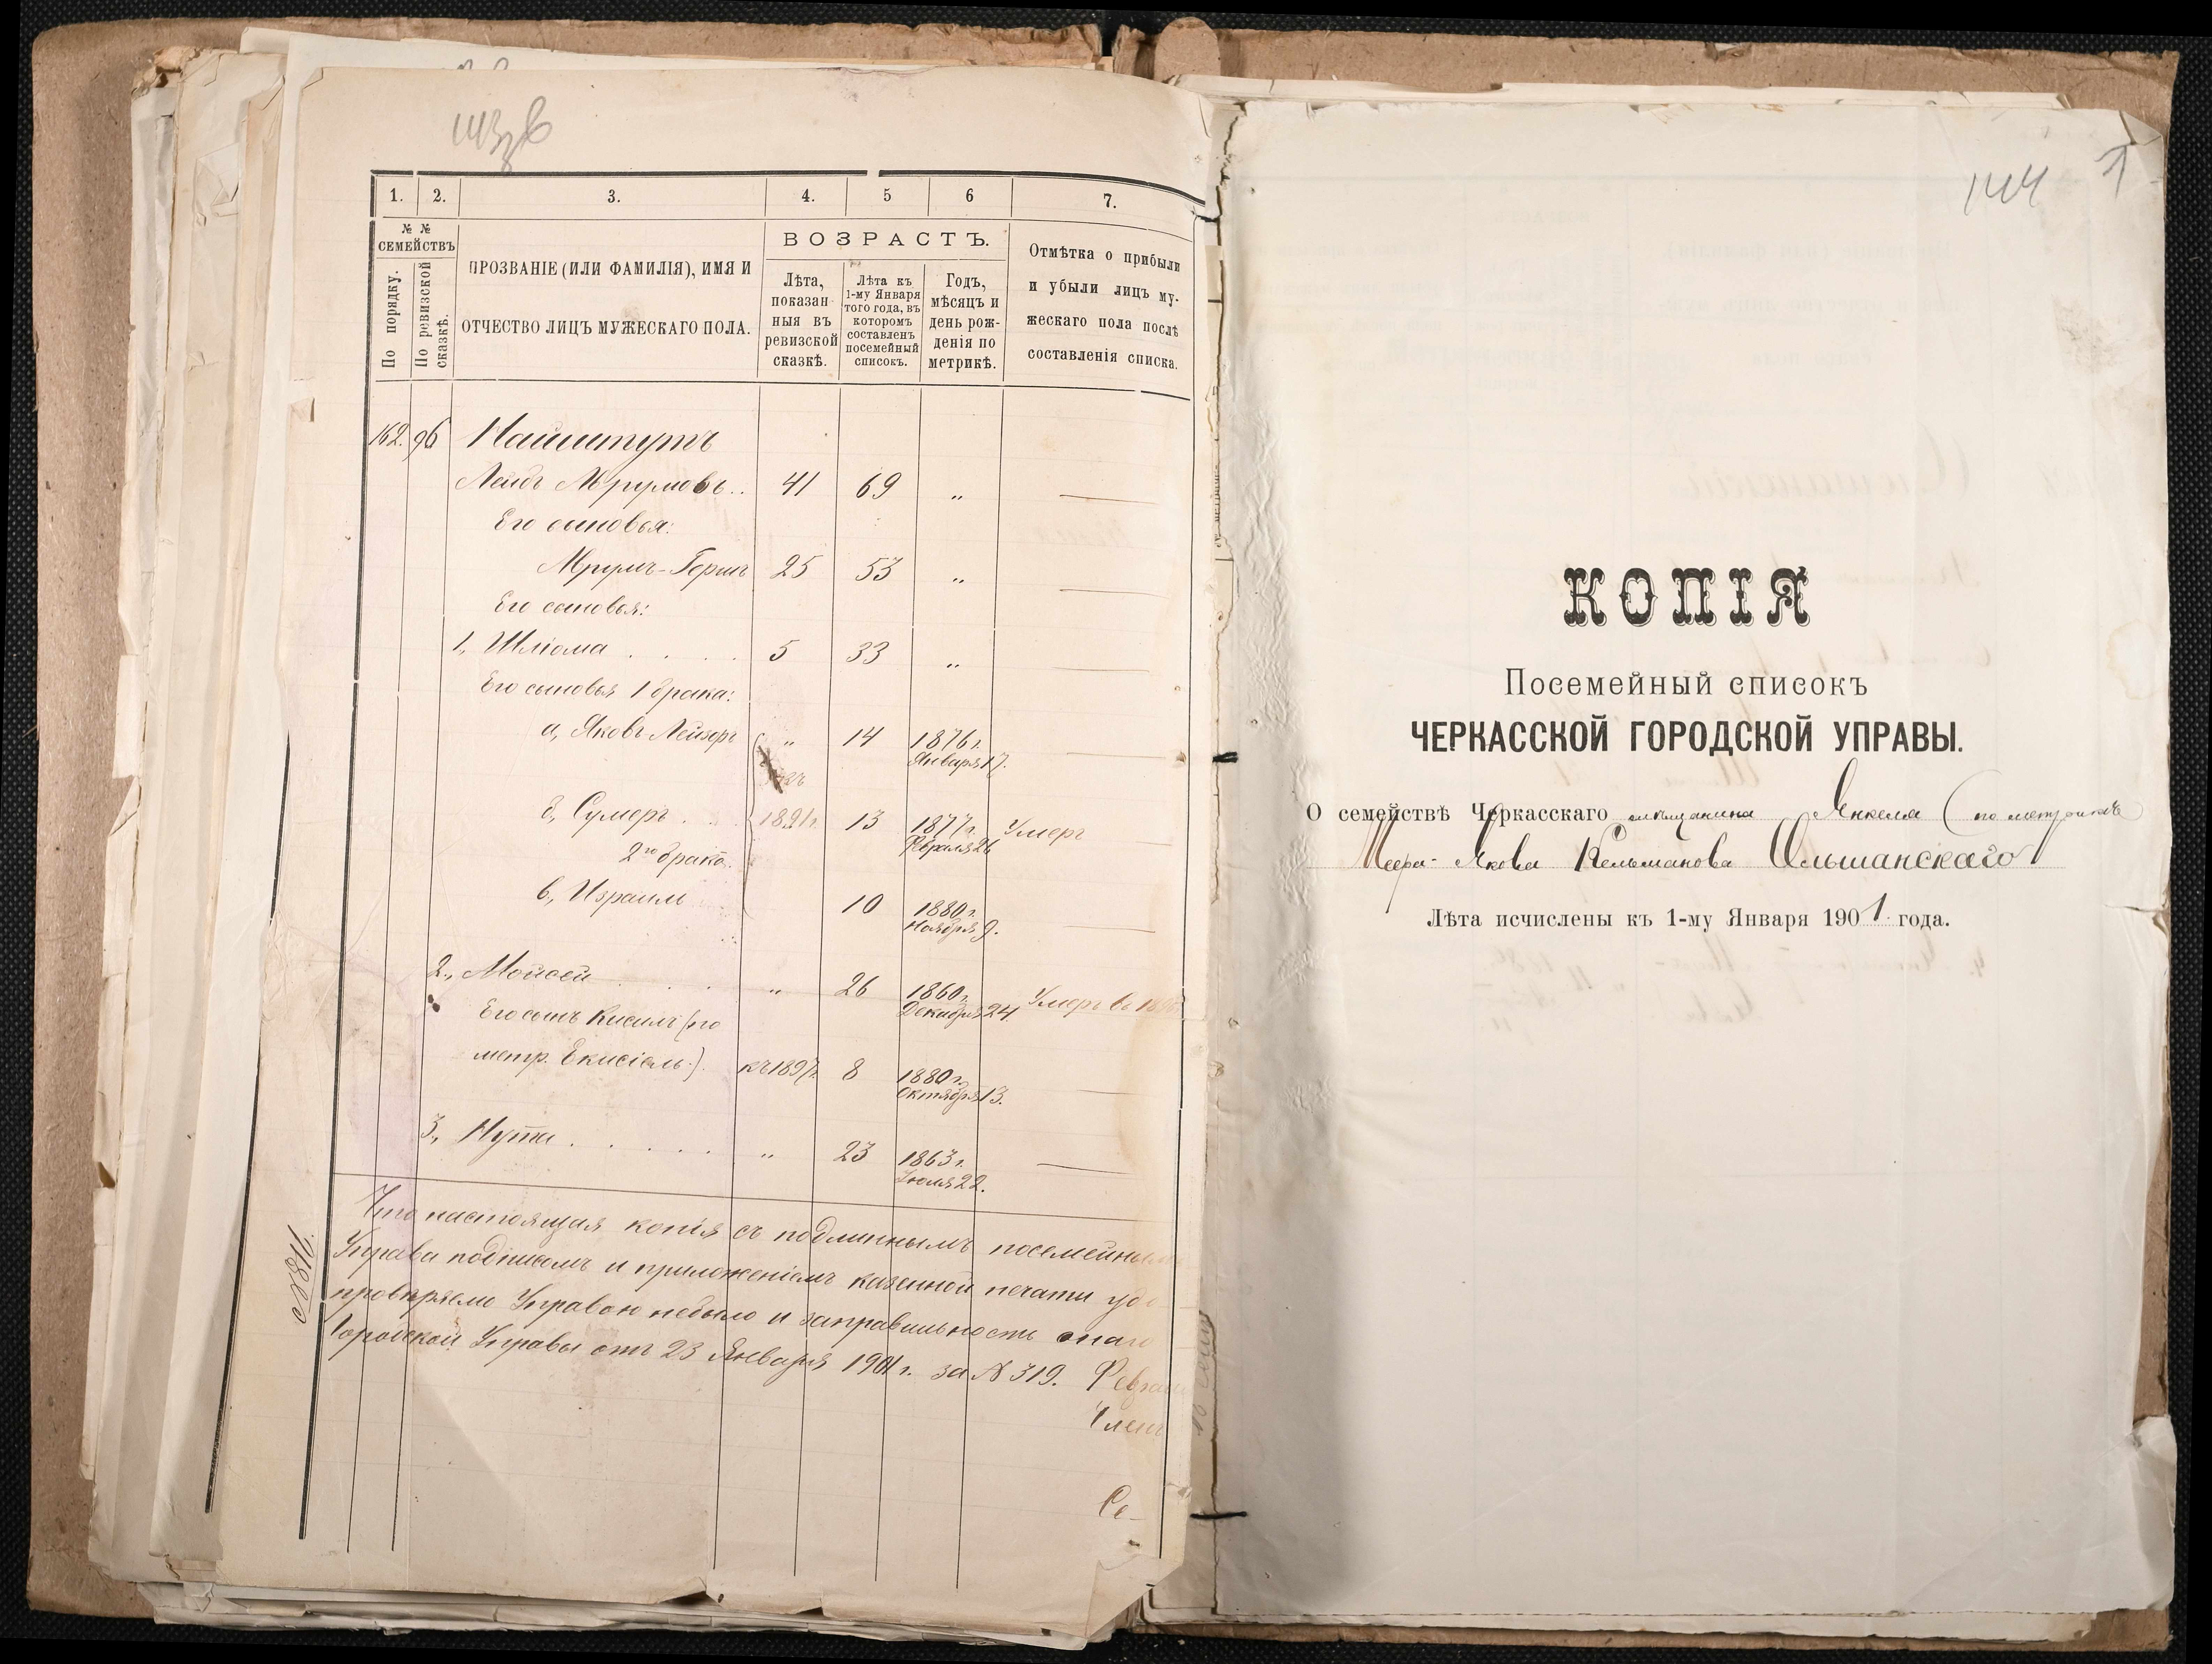 143 в
1.
2.
3.
4.
5
6
7.
№ №
СЕМЕЙСТВЪ
По порядку.
По ревизской
сказкѣ.
ПРОЗВАНІЕ (ИЛИ ФАМИЛІЯ), ИМЯ И
ОТЧЕСТВО ЛИЦЪ МУЖЕСКАГО ПОЛА.
ВОЗРАСТЪ.
Лѣта,
показан-
ныя въ
ревизской
сказкѣ.
Лѣта къ
1-му Января
того года, въ
которомъ
составленъ
посемейный
списокъ.
Годъ,
мѣсяцъ и
день рож-
денія по
метрикѣ.
Отмѣтка о прибыли
и убыли лицъ му-
жескаго пола послѣ
составленія списка.
162. 96 Найштутъ
Лейбъ Мрумовъ.. 41 69 „
Его сыновья:
Мрумъ-Гершъ 25 53 „
Его сыновья:
1, Шліома . . . . 5 33 „
Его сыновья 1 брака:
а, Яковъ-Лейзоръ „ 14 1876 г.
Января 17.
б, Сумеръ . . 1891 г. 13 1877 г. Умеръ
Февраля 26
2го брака.
в, Израиль 10 1880 г.
Ноября 9.
2., Мойсей . . . „ 26 1860 г. Умеръ въ
Декабря 24
Его сынъ Кисиль (по
метр. Екисіель.). къ 1897 г. 8 1880 г.
Октября 13.
3., Нута . . . . . „ 23 1863 г.
Іюля 22.
Что настоящая копія съ подлиннымъ посемейнымъ
Управа подписомъ и приложеніемъ казенной печати удо
провѣряемо Управою небыло и заправильность онаго
Городской Управы отъ 23 Января 1901 г. за № 319.
Членъ
Се-
№ 816.
144
КОПІЯ
Посемейный списокъ
ЧЕРКАССКОЙ ГОРОДСКОЙ УПРАВЫ.
О семействѣ Черкасскаго мѣщанина Янкеля (по метрикѣ
Меера-Якова Кельманова Ольшанскаго
Лѣта исчислены къ 1-му Января 1901 года.